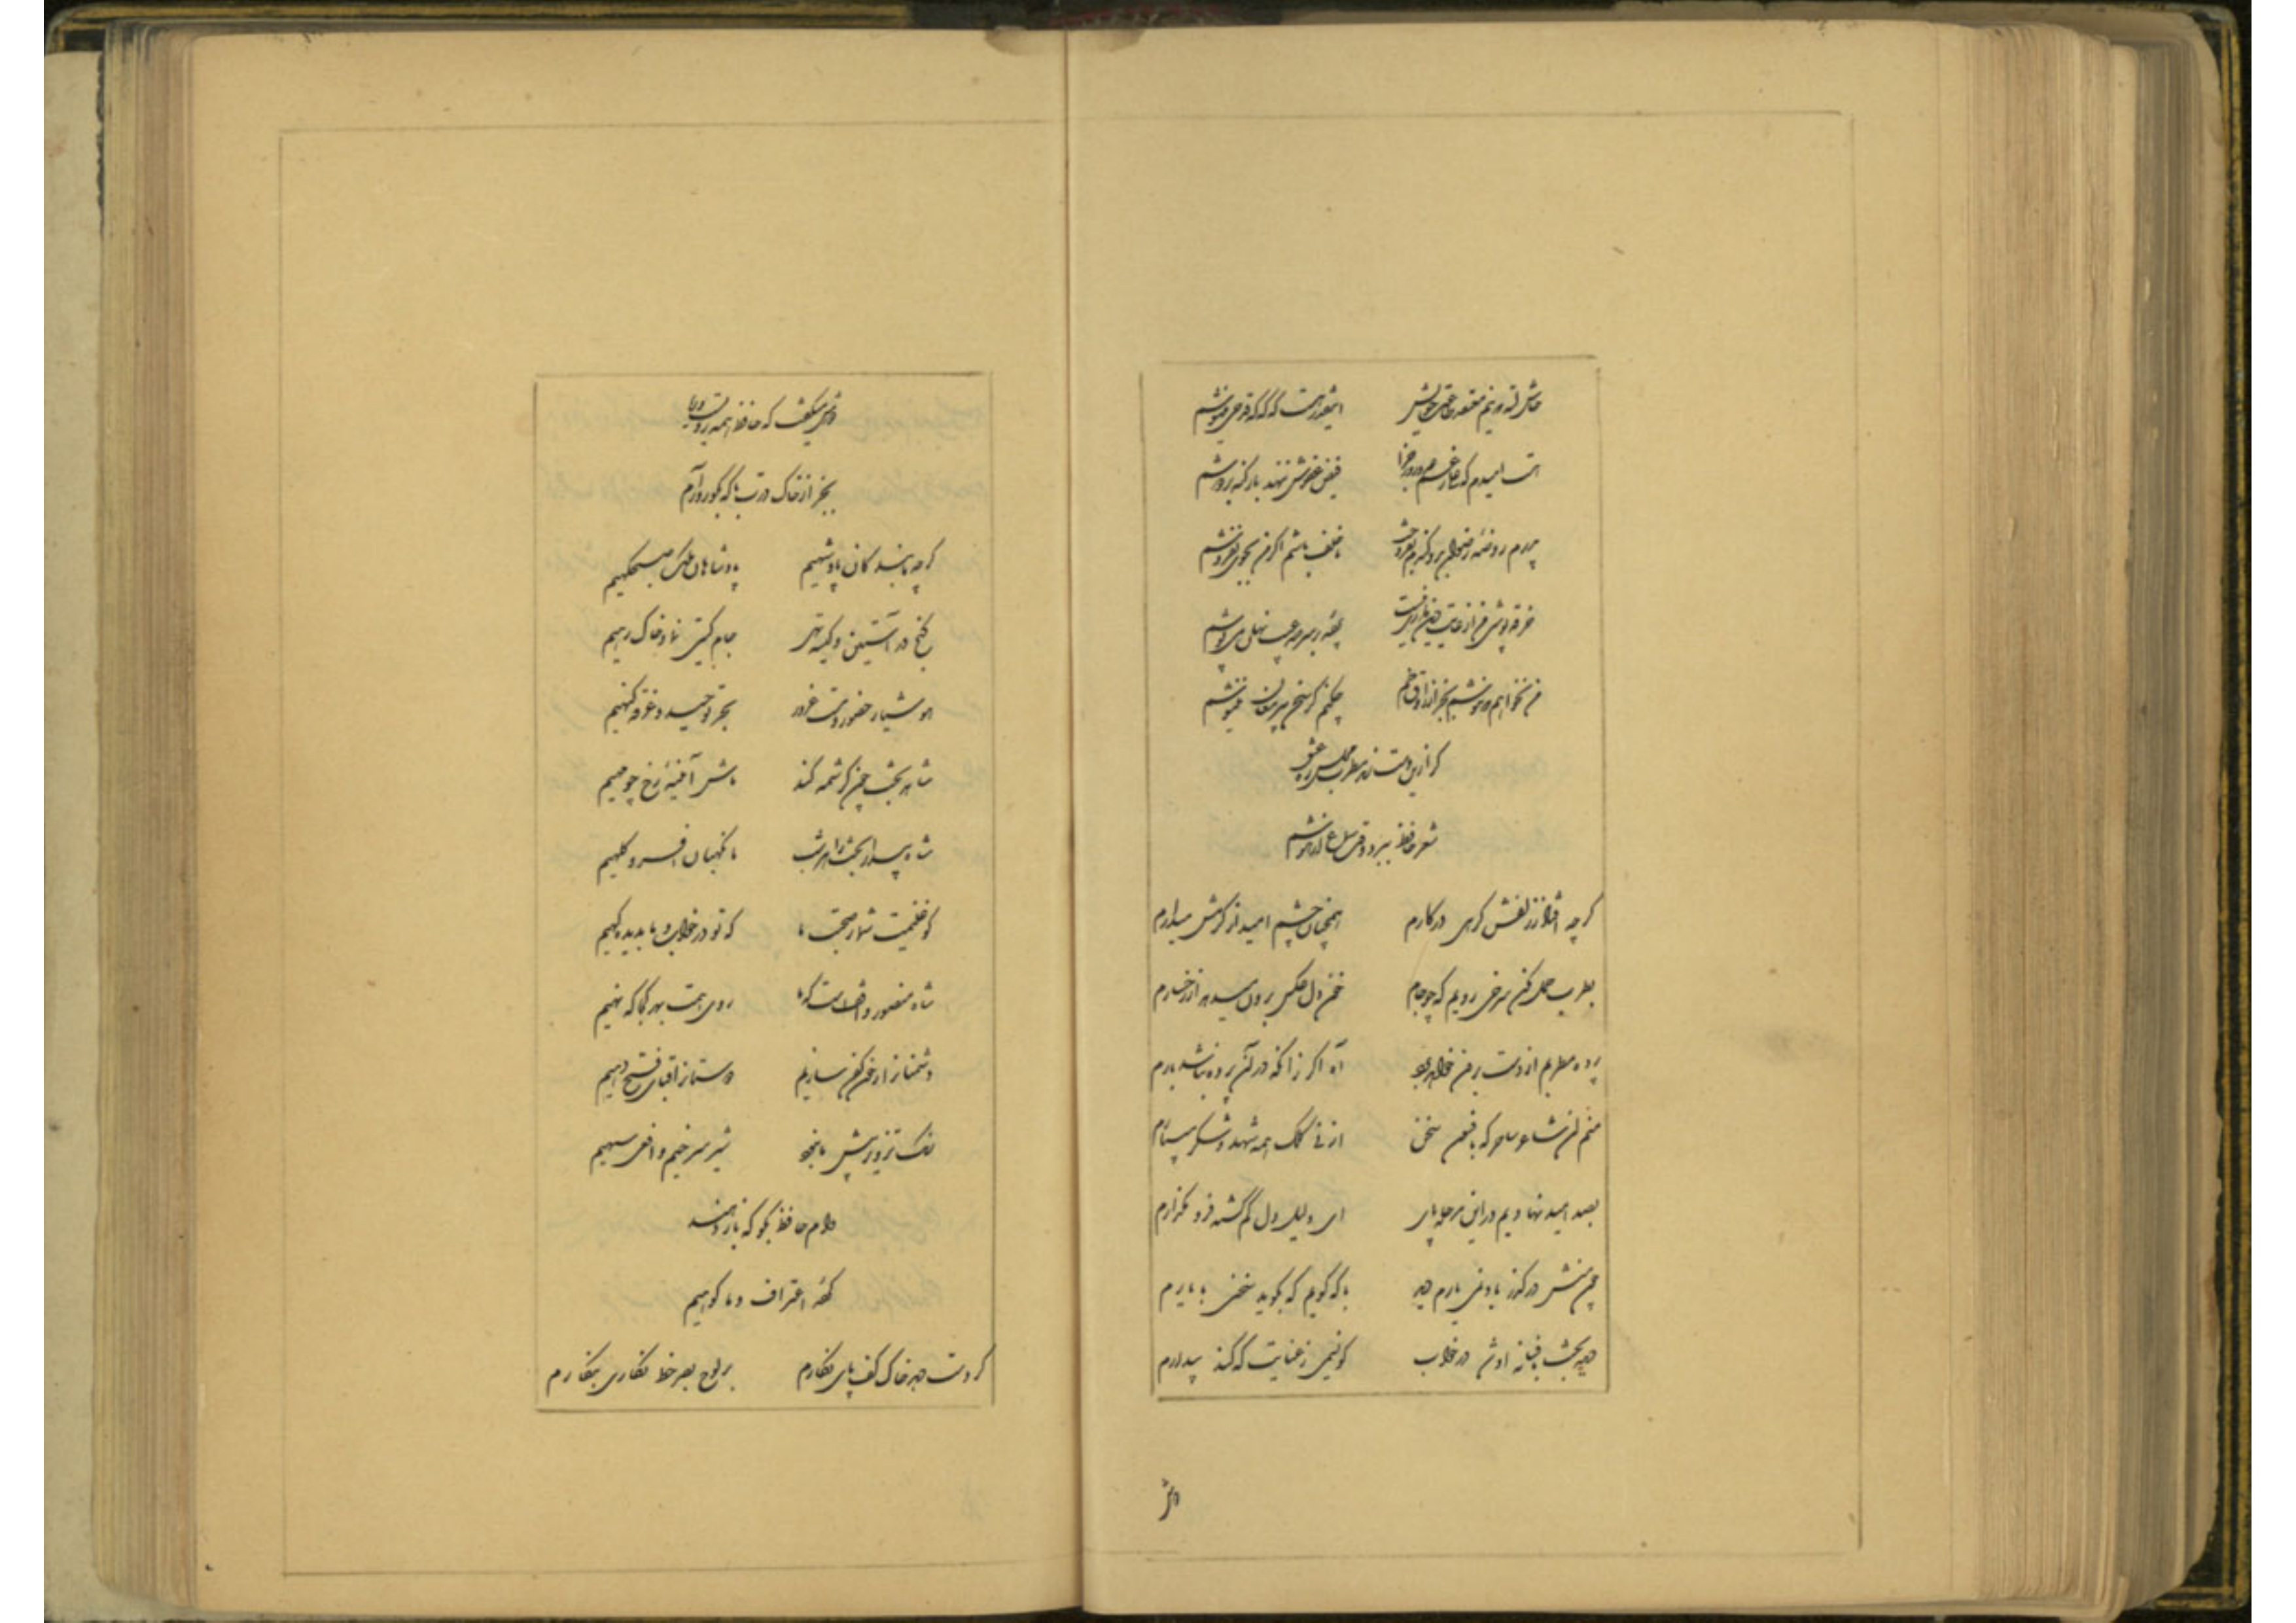 حاش لله که نیم معتقد طاعت خویش اینقدر هست که گه گه قدحی مینوشم
هست امیدم که علی رغم عدو روز جزا فیض عفوش ننهد بار گنه بر دوشم
پدرم روضه رضوان بدو گندم بفروخت ناخلف باشم اگر من بجوی نفروشم
خرقه پوشی من از غایت دین داری نیست پرده بر سر صد عیب نهان می پوشم
من نخواهم که ننوشم بجز از راوق خم چکنم گر سخن پیر مغان ننیوشم
گر ازین دست زند مطرب مجلس ره عشق
شعر حافظ ببرد وقت سماع از هوشم
گرچه افتاد ز زلفش گرهی در کارم همچنان چشم امید از کرمش میدارم
بطرب حمل مکن سرخی رویم که چو جام خون دل عکس برون میدهد از رخسارم
پرده مطربم از دست برون خواهد برد آه اگر زانکه در آن پرده نباشد بارم
منم آن شاعر ساحر که بافسون سخن از نی کلک همه شهد و شکر میبارم
بصد امید نهادیم در این مرحله پای ای دلیل دل گم گشته فرو مگذارم
چون منش در گذر باد نمی یارم دید با که گویم که بگوید سخنی با یارم
دیده بخت بافسانه او شد در خواب کو نسیمی ز عنایت که کند بیدارم
دوش
دوش میگفت که حافظ همه رویست و ریا
بجز از خاک درت با که بگو در کارم
گرچه ما بندگان پادشهیم پادشاهان ملک صبحگهیم
گنج در آستین و کیسه تهی جام گیتی نما و خاک رهیم
هوشیار حضور و مست غرور بحر توحید و غرقه گنهیم
شاهد بخت چون کرشمه کند ماش آئینه رخ چو مهیم
شاه بیدار بخت را هر شب ما نگهبان افسر و کلهیم
گو غنیمت شمار صحبت ما که تو در خواب و ما بدیده گهیم
شاه منصور واقفست که ما روی همت بهر کجا که نهیم
دشمنانرا ز خون کفن سازیم دوستانرا قبای فتح دهیم
رنگ تزویر پیش ما نبود شیر سرخیم و افعی سیهیم
وام حافظ بگو که باز دهند
کرده اعتراف و ما گوهیم
گر دست دهد خاک کف پای نگارم بر لوح بصر خط غباری بنگارم